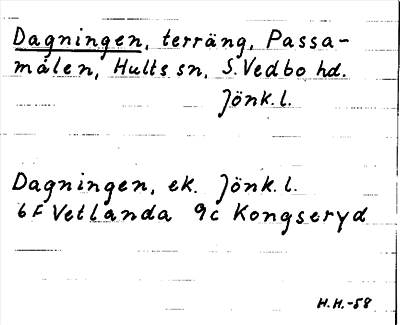 Dagningen, terräng, Passa-
målen, Hults sn, S. Vedbo hd.
Jönk. l.
Dagningen, ek. Jönk. l.
6 F Vetlanda 9c Kongseryd
H.H.-58